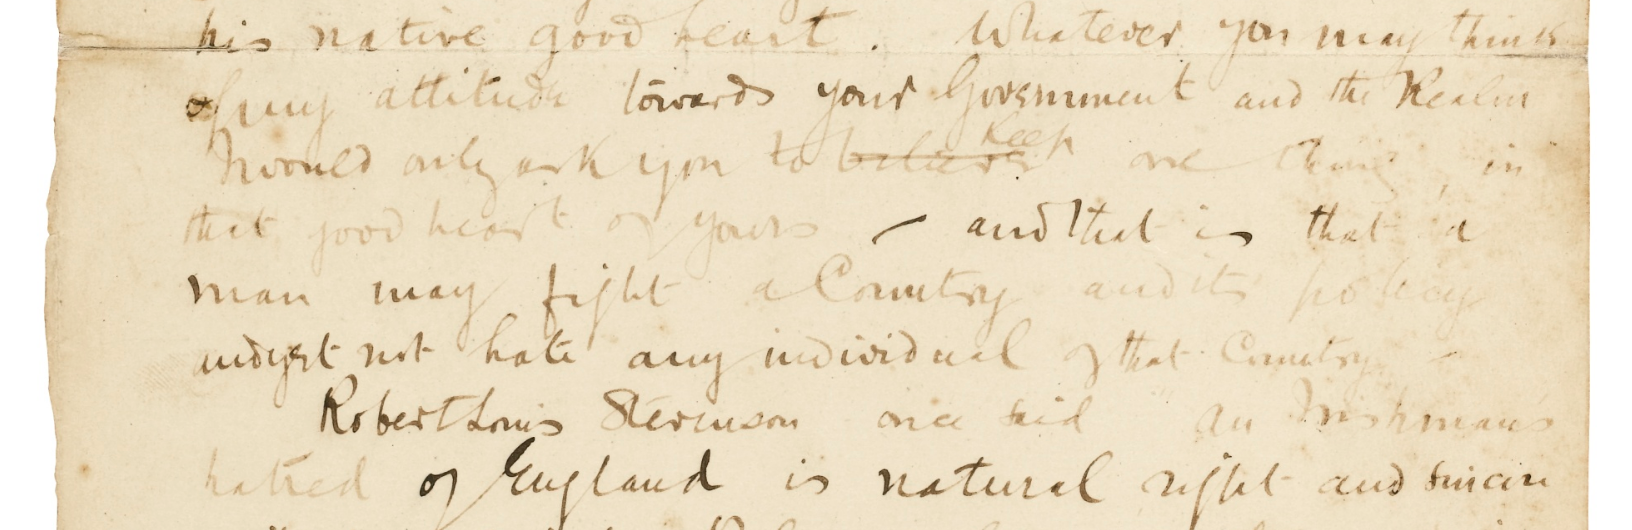 his native good heart. Whatever you may think
of my attitude towards your Government and the Realm
I would only ask you to believe keep one thing, in
that good heart of yours – and that is that a
man may fight a Country and its policy
and yet not hate any individual of that Country –
Robert Louis Stevenson once said "an Irishman's
hatred of England is natural right and sincere